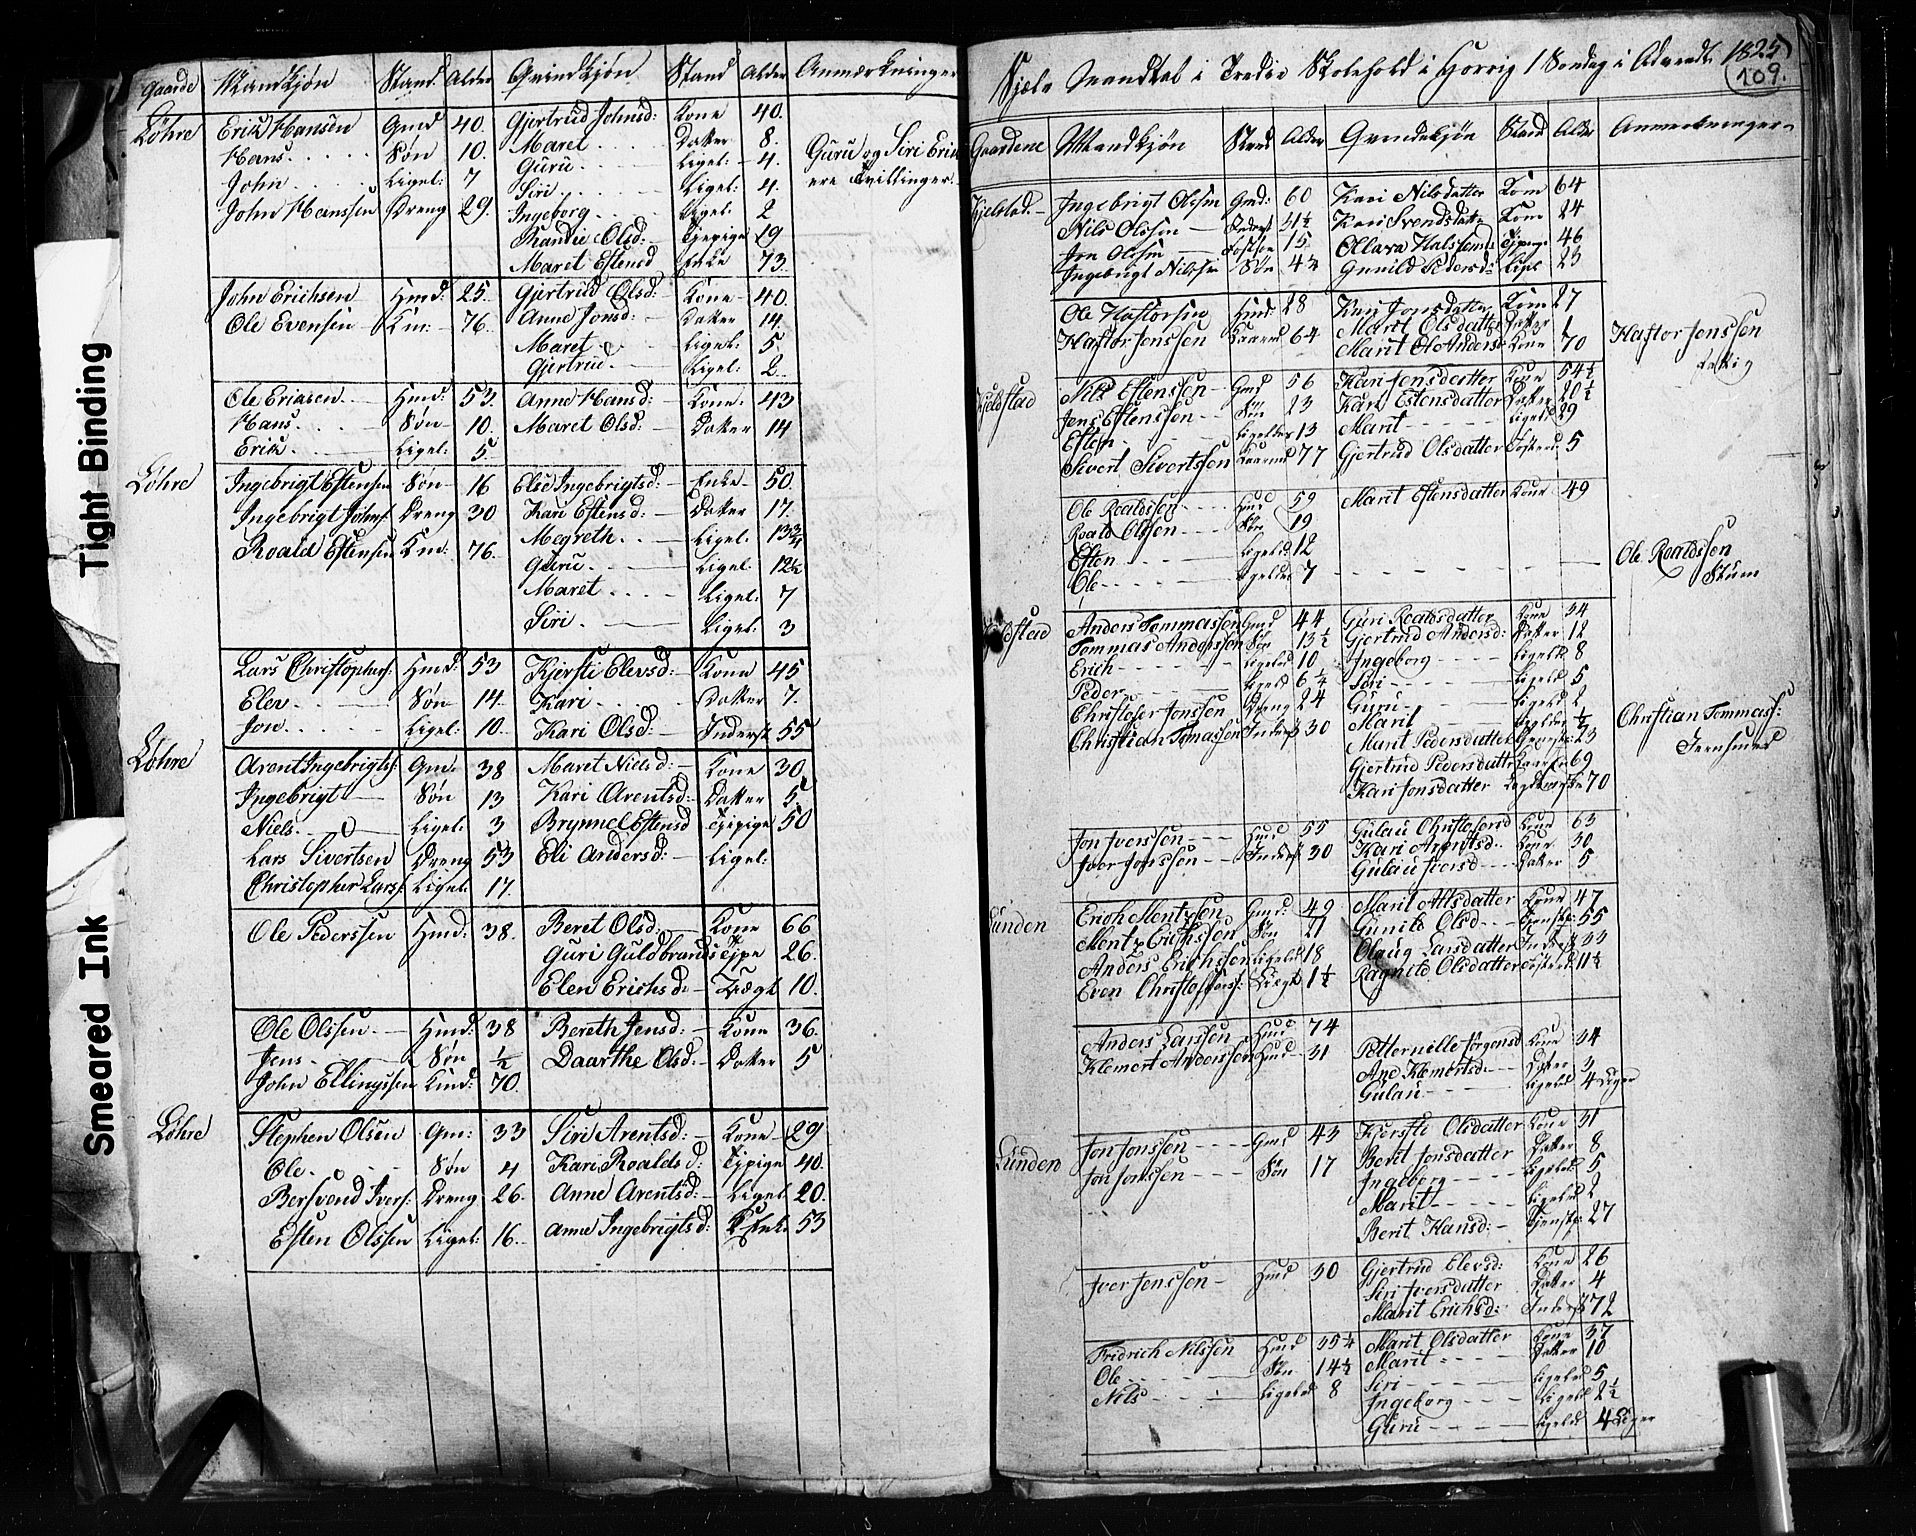 Tight Binding
Smeared Ink
Gaarde Mandkjøn Stand Alder Qvindkjøn Stand Alder Anmærkninger
Løhre Erik Hansen Gmd 40. Gjertrud Johnsd: Kone 40.
Hans Søn 10. Maret Datter 8.
John Ligel: 7 Guru Ligel: 4. Guru og Siri
John Hanssen Dreng 29. Siri Ligel: 4. ere Tvillinger.
Ingeborg Ligel: 2
Randie Olsd: Tjpige 19
Maret Estensd Enke 73.
John Erichsen Hmd: 25. Gjertrud Olsd: Kone 40.
Ole Evensen Km: 76. Anne Jonsd: Datter 14.
Maret Ligel: 5
Gjertrud Ligel: 2
Ole Ericsen Hmd: 53. Anne Hansd: Kone 43
Hans Søn 10. Maret Olsd: Datter 14
Erik Ligel: 5
Løhre Ingebrigt Estensen Søn 16 Elsie Ingebrigtsd: Enke 50.
Ingebrigt Johns: Dreng 30 Kari Estensd: Datter 17.
Roald Estensen Km: 76. Megreth Ligel: 13 3/4
Guru Ligel: 12½
Maret Ligel: 7
Siri Ligel: 3
Lars Christophers: Hmd: 53 Kjersti Elevsd: Kone 45
Elev Søn 14. Kari Datter 7.
Jon Ligel: 10. Kari Olsd: Inderst 55
Løhre Arent Ingebrigts: Gm: 38 Maret Nielsd: Kone 30
Ingebrigt Søn 13 Kari Arentsd: Datter 5.
Niels Ligel: 3 Brynnel Estensd Tjpige 50
Lars Sivertsen Dreng 53 Eli Andersd: Ligel:
Christopher Lars: Ligel: 17.
Ole Pederssen Hmd: 38. Beret Olsd Kone 66
Guri Guldbrands Tjpe 26.
Elen Erichsd: Lægt 10.
Ole Olssen Hmd: 38 Bereth Jensd: Kone 36.
Jens Søn ½ Daarthe Olsd: Datter 5
John Ellingssen Kmd: 70.
Løhre Stephen Olsen Gm: 33 Siri Arentsd: Kone 29
Ole Søn 4 Kari Roaldsd: Tjpige 40.
Bersvend Ivers: Dreng 26. Anne Arentsd: Ligel 20.
Esten Olssen Ligel: 16. Anne Ingebrigtsd: Enke 53
Sjæle Mandtal i Tredie Skolehold i Horrig 1 Søndag i Advendt 1825
109.
Gaardene Mandkjøn Stand Alder Qvindekjøn Stand Alder Anmerkninger
Kjelstad Ingebrigt Olsen Gmd: 60 Kari Nilsdatter Kone 64
Nils Olssen Inderst 31½ Kari Svendsdatt Kone 24
Jon Olssen 15 Ollava Halstens: Tjpige 46
Ingebrigt Nilssen Søn 4¼ Gunild Pedersd: Ligel 23
Ole Hastorsen Hmd: 28 Kari Jonsdatter Kone 27
Hastor Jenssen Kaarmd 64 Marit Olsdatter Datter 1 Hastor Jenssen
Marit Ole Anders Kone 70
Kjeldstad Nils Estenssen Gmd 56 Kari Jensdatter Kone 54½
Jens Estenssen Søn 23 Kari Estensdatter Datter 20½
Esten Ligeledes 13 Marit Ligeld 29
Sivert Sivertssen Kaarmd 77 Gjertrud Olsdatter 5
Ole Roaldssen Hmd 59 Marit Estensdatter Kone 49
Roald Olssen Søn 19
Esten Ligeled 12 Ole Roaldssen
Ole Ligeldes 7 Stum
Anders Tommassen Gmd 44 Guri Roaldsdatter Kone 34
Tommas Anderssen Søn 13½ Gjertrud Andersd: Datter 12
Erich Ligeled 10 Ingeborg Ligeld 8
Peder Ligeld 6¼ Siri Ligeld 5
Christofer Jonssen Dreng 24 Guru Ligeld 2
Christian Tomassen Inderst 30 Marit Ligeldes ½ Christian Tommass:
Marit Pedersdatter 23 Jernsmed
Gjertrud Pedersdatter 69
Kari Jonsdatter 70
Jon Iverssen Hmd 55 Gulau Christofersd Kone 63
Iver Jonssen Inderst 30 Kari Arentsd Kone 30
Gulau Iversd Datter 5
Lunden Erich Mentzsen Gmd: 49 Marit Atlsdatter Kone 47
Mentz Erichssen Søn 21 Gunild Olsd 55
Anders Erichssen Ligeled 18 Olaug Larsdatter Inderst 33
Even Christoffers: Lægt 1½ Ragnild Olsdatter 11½
Anders Larssen Hmd 74
Klemert Anderssen Hmd 31 Petternelle Jørgensd Kone 34
Ane Klemertsd Datter 3
Gulau Ligeled 4 Uger
Lunden Jon Jonssen Gmd 43 Kjersti Olsdatter Kone 31
Jon Jonssen Søn 17 Berit Jonsdatter Datter 8
Ingeborg Ligeled 5
Marit Ligeled 2
Berit Hansd: Tjenstp: 27
Iver Jenssen Hmd 30 Gjertrud Elevsd: Kone 26
Siri Iversdatter Datter 4
Marit Erichsd: Inderst 72
Fridrich Nilssen Hmd 35¼ Marit Olsdatter Kone 37
Ole Søn 14½ Marit Datter 10
Nils Ligeled 8 Siri Ligeled 5
Ingeborg Ligeld 2½
Guru Ligeld 4 Uger